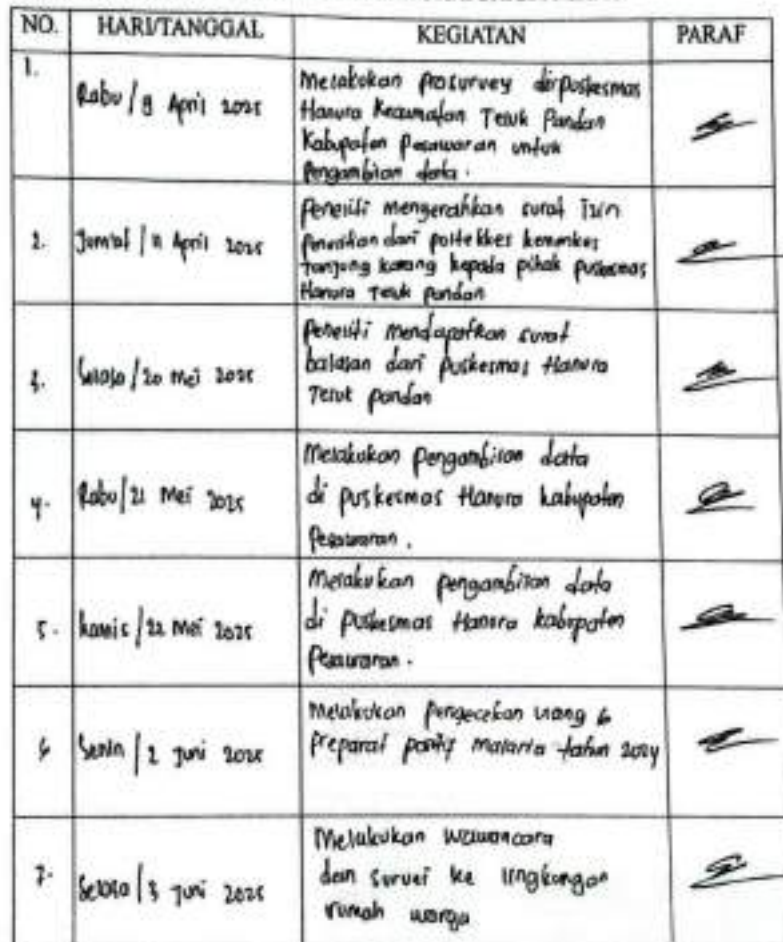 NO. HARI/TANGGAL KEGIATAN PARAF
1. Rabu / 9 April 2025
Melakukan prasurvey di puskesmas
Hanura Kecamatan Teluk Pandan
Kabupaten Pesawaran untuk
Pengambilan data.
2. Jum'at / 11 April 2025
Peneliti mengerahkan surat Izin
Penelitian dari poltekkes kemenkes
tanjung karang kepada pihak puskesmas
Hanura Teluk pandan
3. Selasa / 20 Mei 2025
Peneliti mendapatkan surat
balasan dari puskesmas Hanura
Teluk pandan
4. Rabu / 21 Mei 2025
Melakukan pengambilan data
di puskesmas Hanura kabupaten
Pesawaran.
5. Kamis / 22 Mei 2025
Melakukan pengambilan data
di Puskesmas Hanura kabupaten
Pesawaran.
6 Senin / 2 Juni 2025
Melakukan Pengecekan ulang 6
Preparat positif malaria tahun 2024
7. Selasa / 3 Juni 2025
Melakukan wawancara
dan survei ke lingkungan
rumah warga